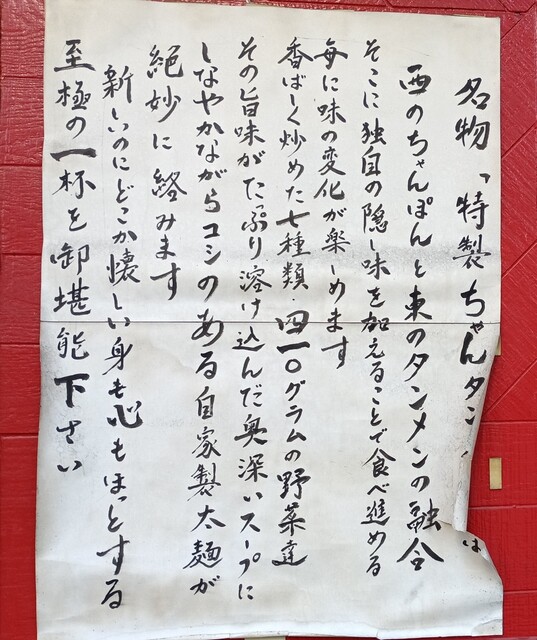 名物「特製ちゃんタン
は
西のちゃんぽんと東のタンメンの融合
そこに独自の隠し味を加えることで食べ進める
毎に味の変化が楽しめます
香ばしく炒めた七種類・四一〇グラムの野菜達
その旨味がたっぷり溶け込んだ奥深いスープに
しなやかながらコシのある自家製太麺が
絶妙に絡みます
新しいのにどこか懐しい身も心もほっとする
至極の一杯を御堪能下さい